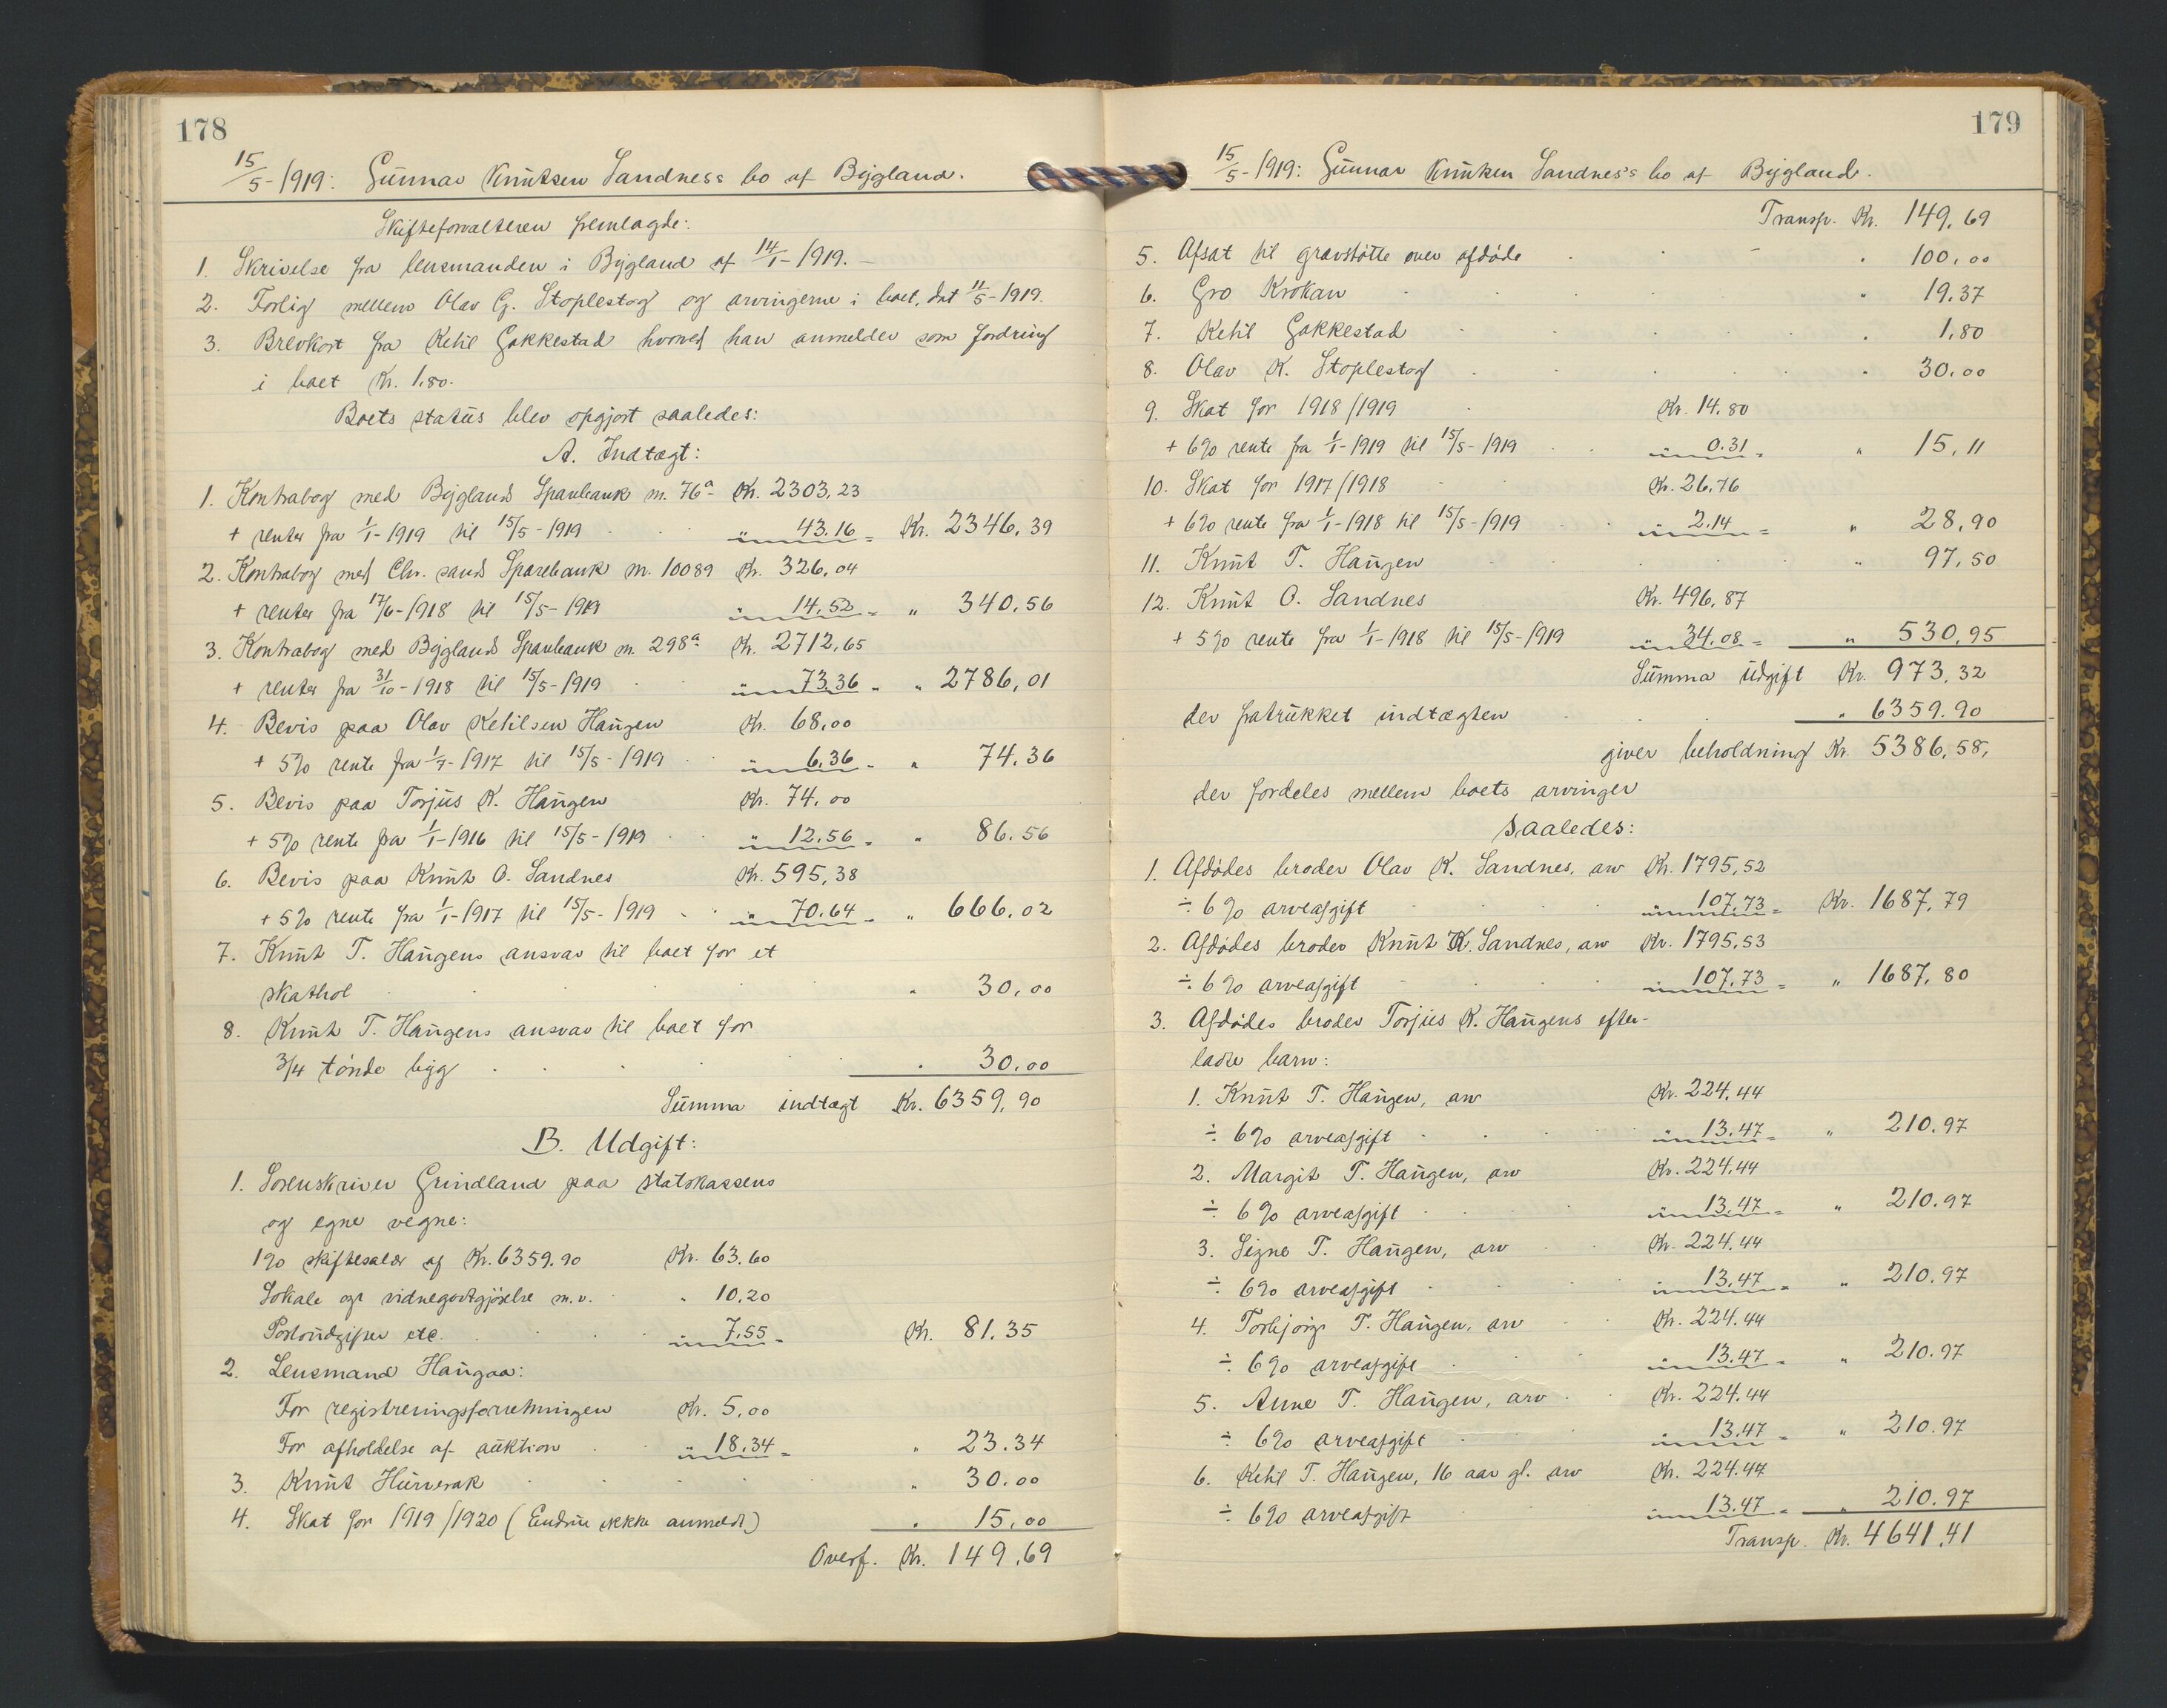 178
15/5-1919: Gunnar Knutsen Sandnes's bo af Bygland.
Skifteforvalteren fremlagde:
1. Skrivelse fra lensmanden i Bygland af 14/1-1919.-
2. Forlig mellem Olav G. Stoplestog og arvingerne i boet, dat 11/5-1919.
3. Brevkort fra Ketil Gakkestad hvorved han anmelder som fordring
i boet Kr. 1.80.
Boets status blev opgjort saaledes:
A. Indtægt:
1. Kontrabog med Bygland Sparebank nr. 76a- Kr. 2303,23
+ renter fra 1/1-1919 til 15/5-1919 " 43.16 = Kr. 2346,39
2. Kontrabog med Chr.sands Sparebank nr. 10089 Kr. 326,04
+ renter fra 17/6-1918 til 15/5-1919 " 14,52 = " 340,56
3. Kontrabog med Bygland Sparebank nr. 298a Kr. 2712,65
+ renter fra 31/10-1918 til 15/5-1919 " 73,36 = " 2786,01
4. Bevis paa Olav Ketilsen Haugen Kr. 68,00
+ 5% rente fra 1/7-1917 til 15/5-1919 " 6,36 = " 74.36
5. Bevis paa Torjus K. Haugen Kr. 74,00
+ 5% rente fra 1/1-1916 til 15/5-1919 " 12.56 = " 86.56
6. Bevis paa Knut O. Sandnes Kr. 595,38
+ 5% rente fra 1/1-1917 til 15/5-1919 " 70.64 = " 666.02
7. Knut T. Haugens ansvar til boet for et
skathol " 30,00
8. Knut T. Haugens ansvar til boet for
3/4 tønde byg " 30.00
Summa indtægt Kr. 6359,90
B. Udgift:
1. Sorenskriver Grindland paa statskassens
og egne vegne:
1% skiftesalær af Kr. 6359.90 Kr. 63.60
Lokale og vidnegodtgjørelse m.v. " 10.20
Portoudgifter etc. " 7.55 = Kr. 81.35
2. Lensmand Haugaa:
For registreringsforretningen Kr. 5,00
For afholdelse af auktion " 18.34 = " 23.34
3. Knut Hurverak " 30.00
4. Skat for 1919/1920 (Endnu ikke anmeldt) " 15,00
Overf. Kr. 149,69
179
15/5-1919: Gunnar Knutsen Sandnes's bo af Bygland.
Transp. Kr. 149,69
5. Afsat til gravstøtte over afdøde " 100,00
6. Gro Krokan " 19.37
7. Ketil Gakkestad " 1.80
8. Olav K. Stoplestog " 30.00
9. Skat for 1918/1919 Kr. 14.80
+ 6% rente fra 1/1-1919 til 15/5-1919 " 0.31 = " 15,11
10. Skat for 1917/1918 Kr. 26,76
+ 6% rente fra 1/1-1918 til 15/5-1919 " 2.14 = " 28,90
11. Knut T. Haugen " 97,50
12. Knut O. Sandnes Kr. 496,87
+ 5% rente fra 1/1-1918 til 15/5-1919 " 34.08 = " 530,95
Summa udgift Kr. 973,32
der fratrukket indtægten " 6359.90
giver beholdning Kr. 5386,58,
der fordeles mellem boets arvinger
saaledes:
1. Afdødes broder Olav K. Sandnes, arv Kr. 1795,52
÷ 6% arveafgift " 107,73 = Kr. 1687,79
2. Afdødes broder Knut K. Sandnes, arv Kr. 1795,53
÷ 6% arveafgift " 107,73 = " 1687,80
3. Afdødes broder Torjus K. Haugens efter-
ladte barn:
1. Knut T. Haugen, arv Kr. 224,44
÷ 6% arveafgift " 13.47 = " 210.97
2. Margit T. Haugen, arv Kr. 224.44
÷ 6% arveafgift " 13.47 = " 210.97
3. Signe T. Haugen, arv Kr. 224.44
÷ 6% arveafgift " 13.47 = " 210.97
4. Torbjørg T. Haugen, arv Kr. 224.44
÷ 6% arveafgift " 13.47 = " 210.97
5. Anne T. Haugen, arv Kr. 224.44
÷ 6% arveafgift " 13.47 = " 210.97
6. Ketil T. Haugen, 16 aar gl. arv Kr. 224.44
÷ 6% arveafgift " 13.47 = " 210.97
Transp. Kr. 4641,41